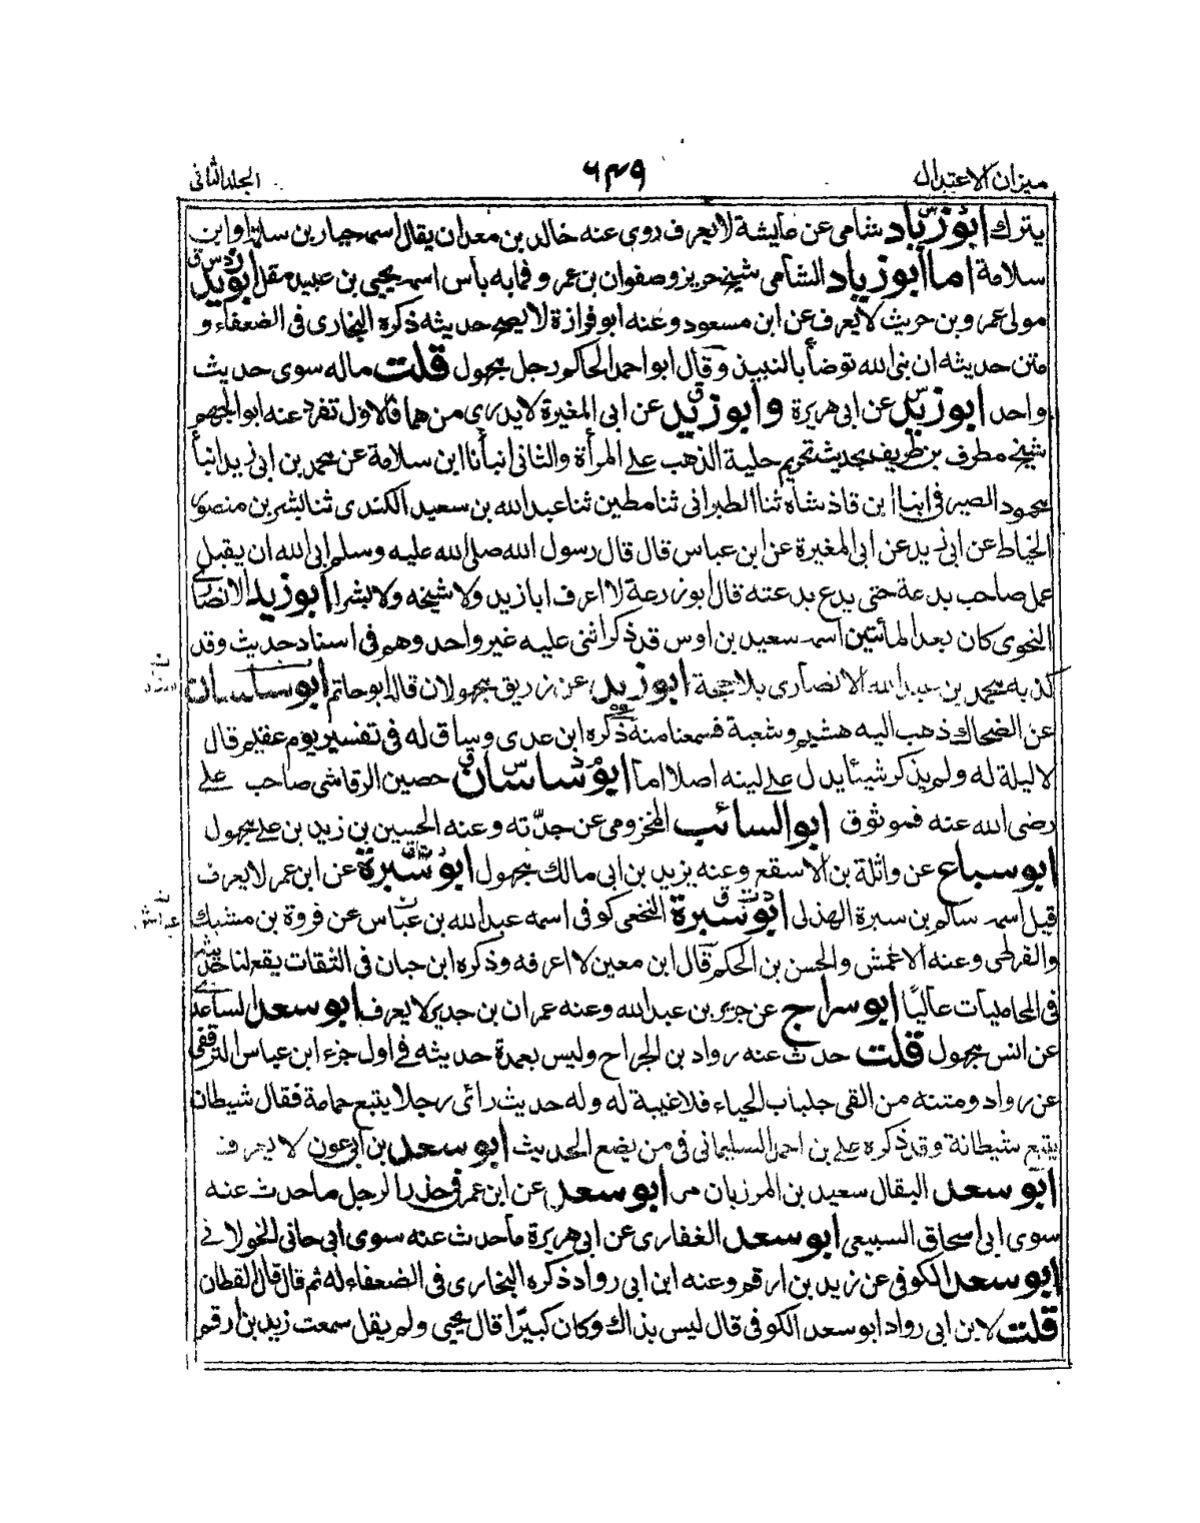 ميزان الاعتدال
٦٤٩
الجلد الثانى
يترك ابو زياد شامى عن عايشة لا يعرف روى عنه خالد بن معدان يقال اسمه حيار بن سلمة او ابن
سلامة اما ابو زياد الشامى شيخ حريز وصفوان بن عمرو فما به بأس اسمه يحيى بن عبيد مقل ابو زيد
مولى عمرو بن حريث لا يعرف عن ابن مسعود وعنه ابو فزارة لا يصح حديثه ذكره البخارى فى الضعفاء و
متن حديثه ان نبى الله توضأ بالنبيذ وقال ابو احمد الحاكم رجل مجهول قلت ماله سوى حديث
واحد ابو زيد عن ابى هريرة وابو زيد عن ابى المغيرة لا يدرى من هما فالاول تفرد عنه ابو الجهم
شيخ مطرف بن طريف بحديث تحريم حلية الذهب على المرأة والثانى انبأنا ابن سلامة عن محمد بن ابى زيد انبأ
محمود الصيرفى انبا ابن فاذشاه ثنا الطبرانى ثنا مطين ثنا عبد الله بن سعيد الكندى ثنا بشر بن منصور
الخياط عن ابى زيد عن ابى المغيرة عن ابن عباس قال قال رسول الله صلى الله عليه وسلم ابى الله ان يقبل
عمل صاحب بدعة حتى يدع بدعته قال ابو زرعة لا اعرف ابا زيد ولا شيخه ولا بشرا ابو زيد الانصارى
النحوى كان بعد المأتين اسمه سعيد بن اوس قد ذكر اثنى عليه غير واحد وهم فى اسناد حديث وقد
كذبه محمد بن عبد الله الانصارى بلا حجة ابو زيد عن زريق مجهولان قاله ابو حاتم ابو ساسان
عن الضحاك ذهب اليه هشيم وشعبة فسمعا منه ذكره ابن عدى وساق له فى تفسير يوم عقيم قال
لا ليلة له ولم يذكر شيئا يدل على لينه اصلا اما ابو ساسان حصين الرقاشى صاحب على
رضى الله عنه فموثوق ابو السائب المخزومى عن جدته وعنه الحسين بن زيد بن على مجهول
ابو سباع عن واثلة بن الاسقع وعنه يزيد بن ابى مالك مجهول ابو سبرة عن ابن عمر لا يعرف
قيل اسمه سالم بن سبرة الهذلى ابو سبرة النخعى كوفى اسمه عبد الله بن عباس عن فروة بن مسيك
والقرظى وعنه الاعمش والحسن بن الحكم قال ابن معين لا اعرفه وذكره ابن حبان فى الثقات يقع لنا حديثه
فى المحامليات عاليا ابو سراج عن جرير بن عبد الله وعنه عمران بن حدير لا يعرف ابو سعد الساعدى
عن انس مجهول قلت حدث عنه رواد بن الجراح وليس بعمدة حديثه فى اول جزء ابن عباس الترقفى
عن رواد ومتنه من القى جلباب الحياء فلا غيبة له وله حديث رأى رجلا يتبع حمامة فقال شيطان
يتبع شيطانة وقد ذكره على بن احمد السليمانى فى من يضع الحديث ابو سعد بن ابى عون لا يعرف
ابو سعد البقال سعيد بن المرزبان مر ابو سعد عن ابن عمر فى خدر الرجل ما حدث عنه
سوى ابى اسحاق السبيعى ابو سعد الغفارى عن ابى هريرة ما حدث عنه سوى ابى هانى الخولانى
ابو سعد الكوفى عن زيد بن ارقم وعنه ابن ابى رواد ذكره البخارى فى الضعفاء له ثم قال قال القطان
قلت لابن ابى رواد ابو سعد الكوفى قال ليس بذاك وكان كبيرا قال يحيى ولم يقل سمعت زيد بن ارقم